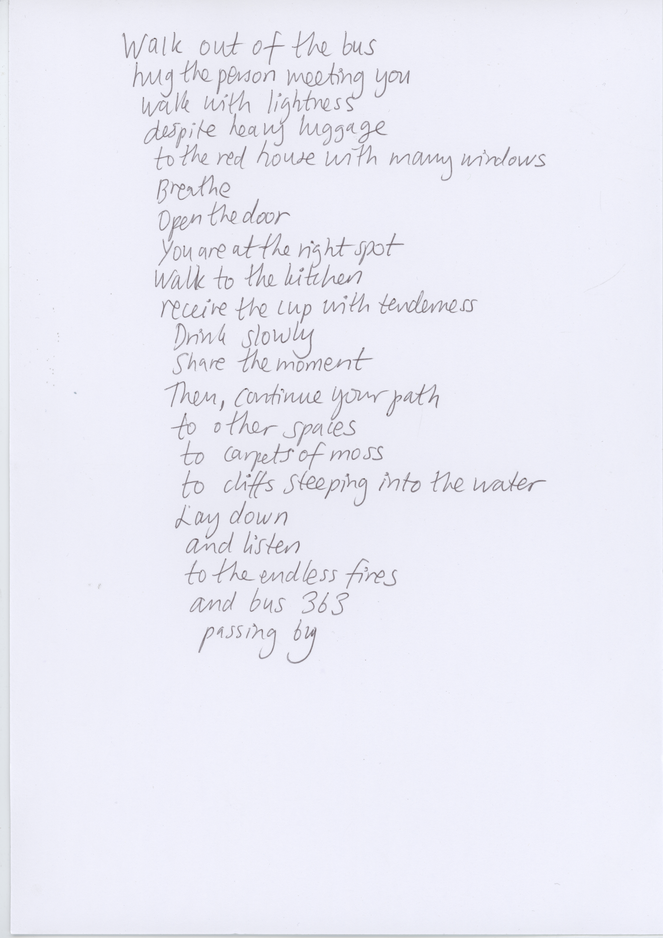 Walk out of the bus
hug the person meeting you
walk with lightness
despite heavy luggage
to the red house with many windows
Breathe
Open the door
You are at the right spot
Walk to the kitchen
receive the cup with tenderness
Drink slowly
Share the moment
Then, continue your path
to other spaces
to carpets of moss
to cliffs steeping into the water
Lay down
and listen
to the endless fires
and bus 363
passing by